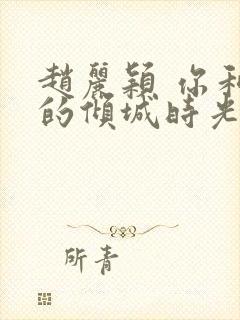 趙麗穎 你和
的傾城時光
所青